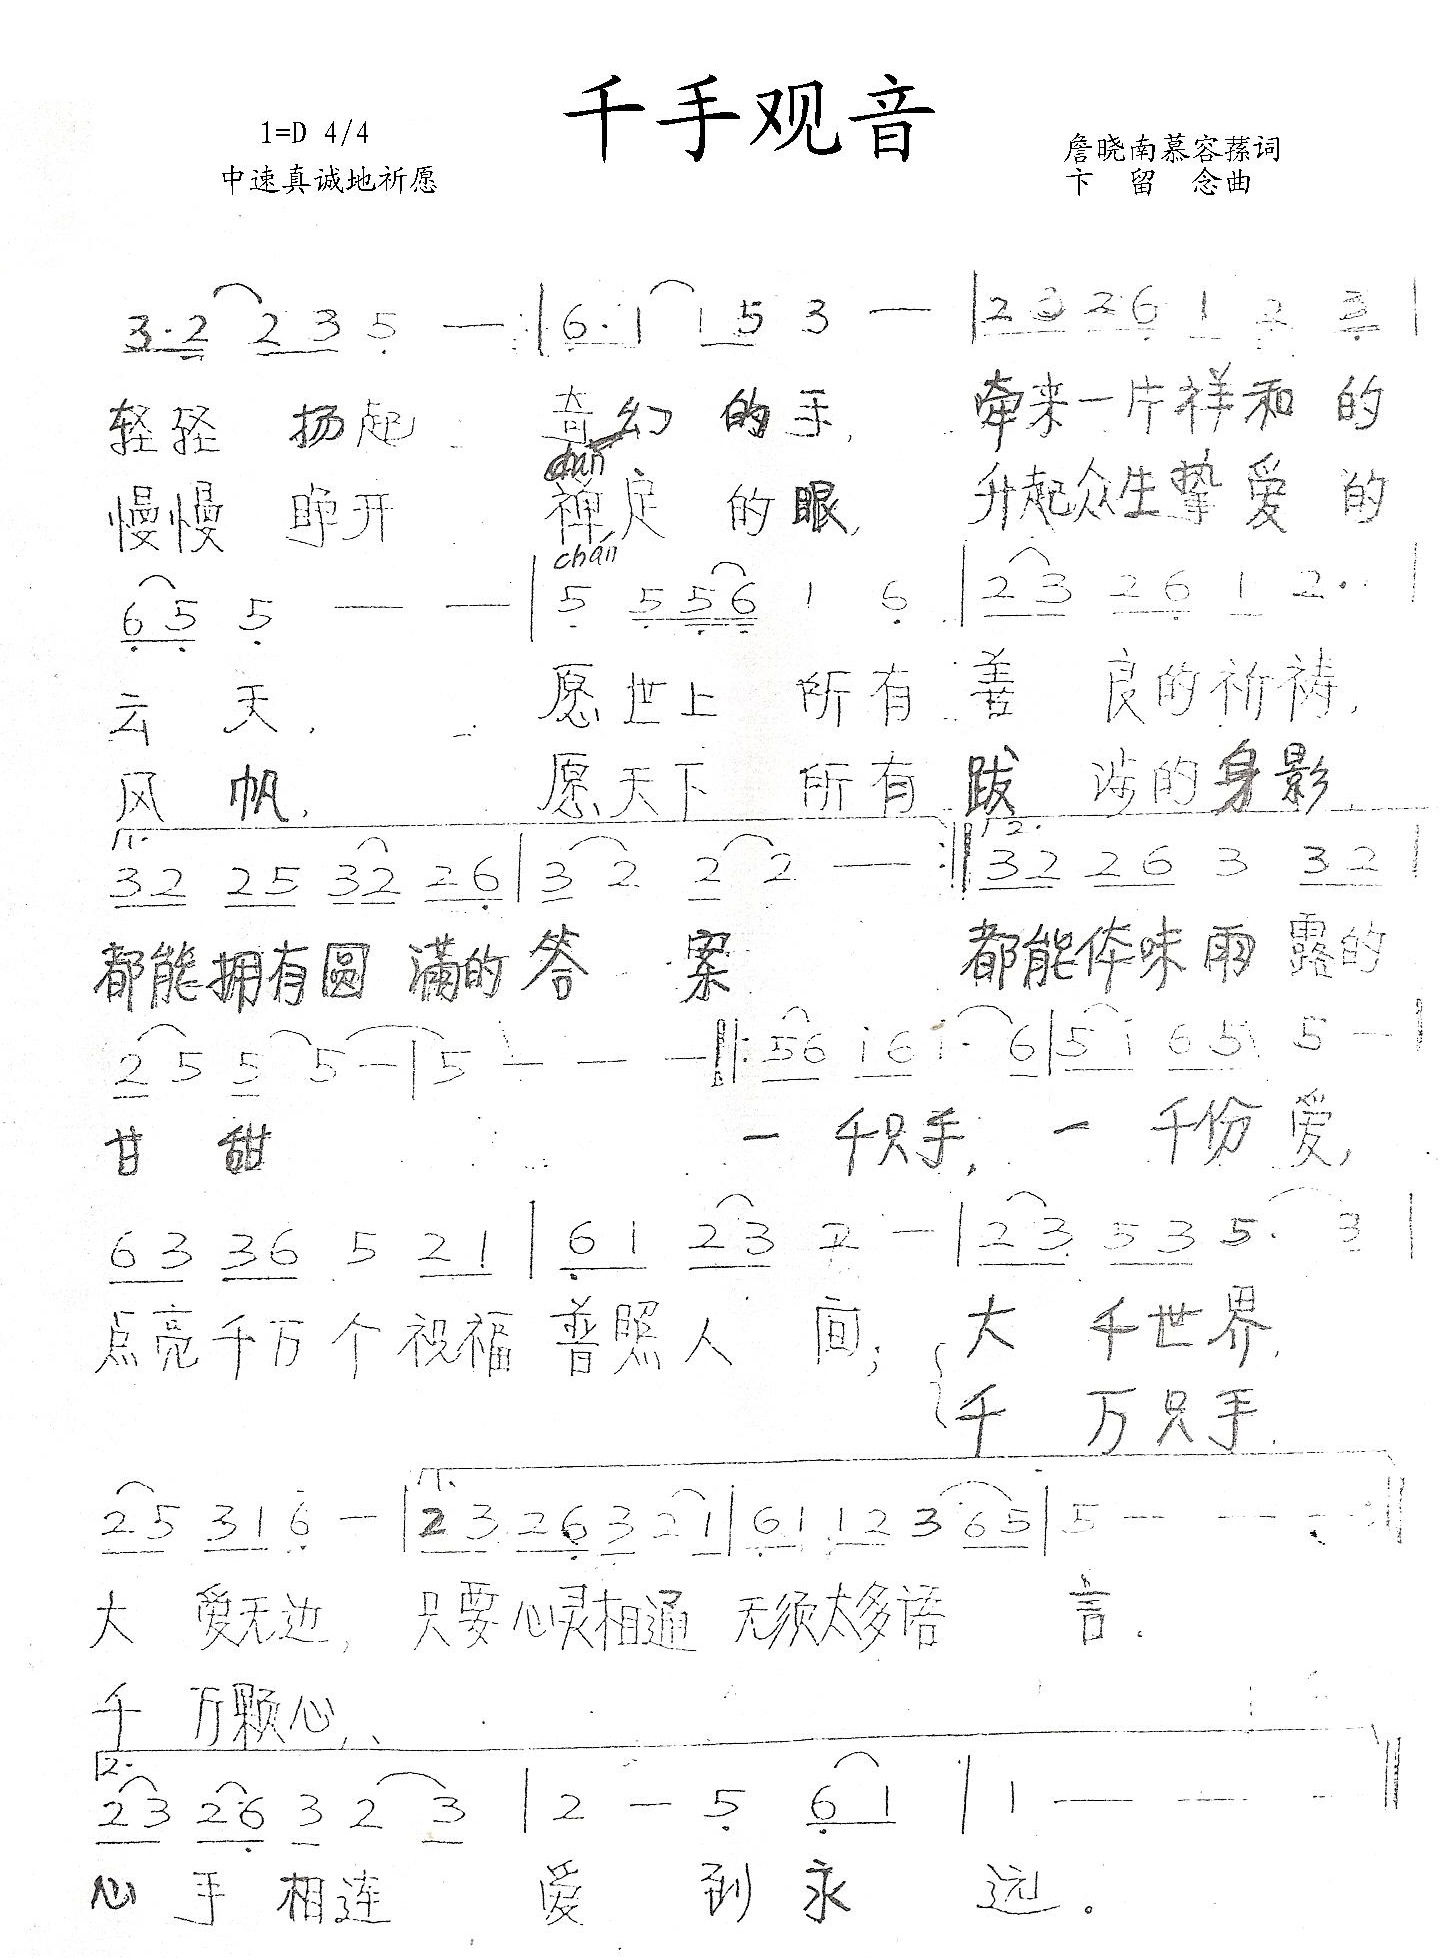 千手观音
1=D 4/4
中速真诚地祈愿
詹晓南慕容蓀词
卞 留 念曲
3·2 2 3 5 — | 6·1 1 5 3 — | 2 3 2 6 1 2 3 |
轻轻 扬起 奇幻 的手, 牵来一片祥和 的
chán
慢慢 睁开 禅定 的眼, 升起众生挚爱 的
chán
6 5 5 — — | 5 5 5 6 1 6 | 2 3 2 6 1 2· |
云 天, 愿世上 所有 善 良的祈祷,
风 帆, 愿天下 所有 跋 涉的身影,
1. 2.
3 2 2 5 3 2 2 6 | 3 2 2 2 — :‖ 3 2 2 6 3 3 2 |
都能拥有圆 满的答 案 都能体味雨 露的
2 5 5 5 — | 5 — — — ‖: 5 6 i 6 i· 6 | 5 i 6 5 5 — |
甘 甜 一 千只手, 一 千份 爱,
6 3 3 6 5 2 1 | 6 1 2 3 2 — | 2 3 5 3 5· 3 |
点亮千万个 祝福 普照人 间; 大 千世界,
千 万只手
1.
2 5 3 1 6 — | 2 3 2 6 3 2 1 | 6 1 1 2 3 6 5 | 5 — — —
大 爱无边, 只要心灵相通 无须太多语 言.
千 万颗心,
2.
2 3 2 6 3 2 3 | 2 — 5 6 1 | 1 — — — ‖
心 手 相连 爱 到 永 远。